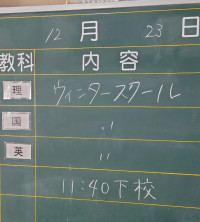 12月23日
教科 内容
理 ウィンタースクール
国 〃
英 〃
11:40下校